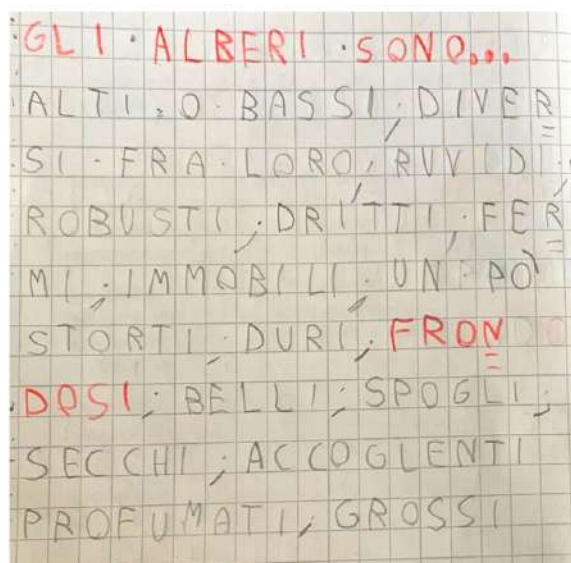 GLI · ALBERI · SONO...
ALTI · O · BASSI, DIVER=
SI · FRA · LORO, RUVIDI,
ROBUSTI, DRITTI, FER=
MI, IMMOBILI, UN · PO'
STORTI, DURI, FRON=
DOSI, BELLI, SPOGLI,
SECCHI, ACCOGLENTI
PROFUMATI, GROSSI